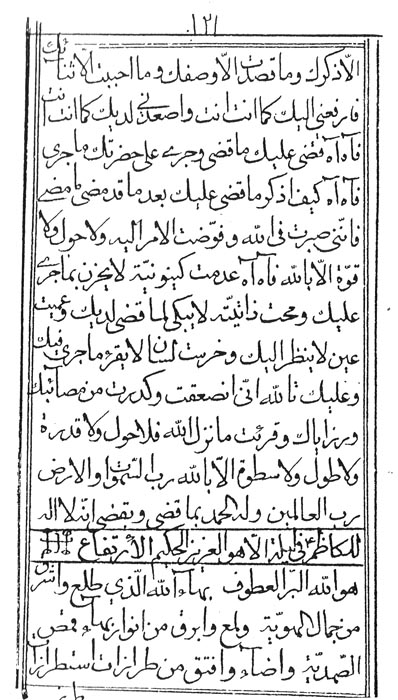 ١٢١
الّا ذكرك وما قصدت الّا وصفك وما احببت الّا ثنائك
فارفعني اليك كما انت انت واصعدني لديك كما انت انت
فآه آه قضى عليك ما قضى وجرى على حضرتك ما جرى
فآه آه كيف اذكر ما قضى عليك بعد ما قد مضى ما مضى
فانّني صبرت في الله وفوّضت الامر اليه ولا حول ولا
قوّة الّا بالله فآه آه عدمت كينونيّة لا يحزن بما جرى
عليك ومحت ذاتيّة لا يبكي لما قضى لديك وعميت
عين لا ينظر اليك وخرست لسان لا يقرء ما جرى فيك
وعليك تالله انّي انصعقت وكدرت من مصآئبك
ورزاياك وقرئت ما نزل الله فلا حول ولا قدرة
ولا طول ولا سطوة الّا بالله ربّ السّموات والارض
ربّ العالمين وله الحمد بما قضى ويقضى انّه لا اله
الّا هو العزيز الحكيم الأرتفاع
هو الله البرّ العطوف بهآء الله الّذي طلع واشرق
من جمال الهويّة ولمع وابرق من انوار بهآء قمص
الصّمديّة واضآء وافتق من طرازات استطرازات